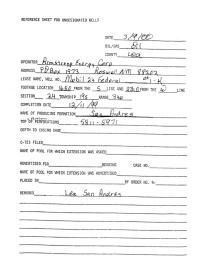 REFERENCE SHEET FOR UNDESIGNATED WELLS
DATE 3/9/00
OIL/GAS Oil
COUNTY Lea
OPERATOR Armstrong Energy Corp
ADDRESS PO Box 1973 Roswell NM 88202
LEASE NAME, WELL NO. Mobil 24 Federal #1-K
FOOTAGE LOCATION 1650 FROM THE S LINE AND FROM THE W LINE
SECTION 24 TOWNSHIP 19S RANGE
COMPLETION DATE 12/11/99
NAME OF PRODUCING FORMATION San Andres
TOP OF PERFORATIONS 5911-5971
DEPTH TO CASING SHOE
C-123 FILED
NAME OF POOL FOR WHICH EXTENSION WAS ASKED
ADVERTISED FOR HEARING CASE NO.
NAME OF POOL FOR WHICH EXTENSION WAS ADVERTISED
PLACED IN BY ORDER NO. R-
REMARKS Lea San Andres